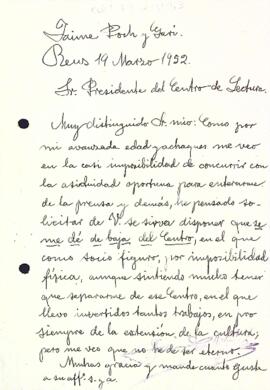 Jaime Poch y Garí.
Reus 19 Marzo 1922.
Sr. Presidente del Centro de Lectura.
Muy distinguido Sr. mio: Como por
mi avanzada edad y achaques me veo
en la casi imposibilidad de concurrir con
la asiduidad oportuna para enterarme
de la prensa y demás, he pensado so-
licitar de V. se sirva disponer que se
me dé de baja del Centro, en el que
como socio figuro, por imposibilidad
física, aunque sintiendo mucho tener
que separarme de ese Centro, en el que
llevo invertidos tantos trabajos, en pro
siempre de la extensión de la cultura;
pero me veo que no he de ser eterno.
Muchas gracias y mande cuanto guste
a su affº. s. s.